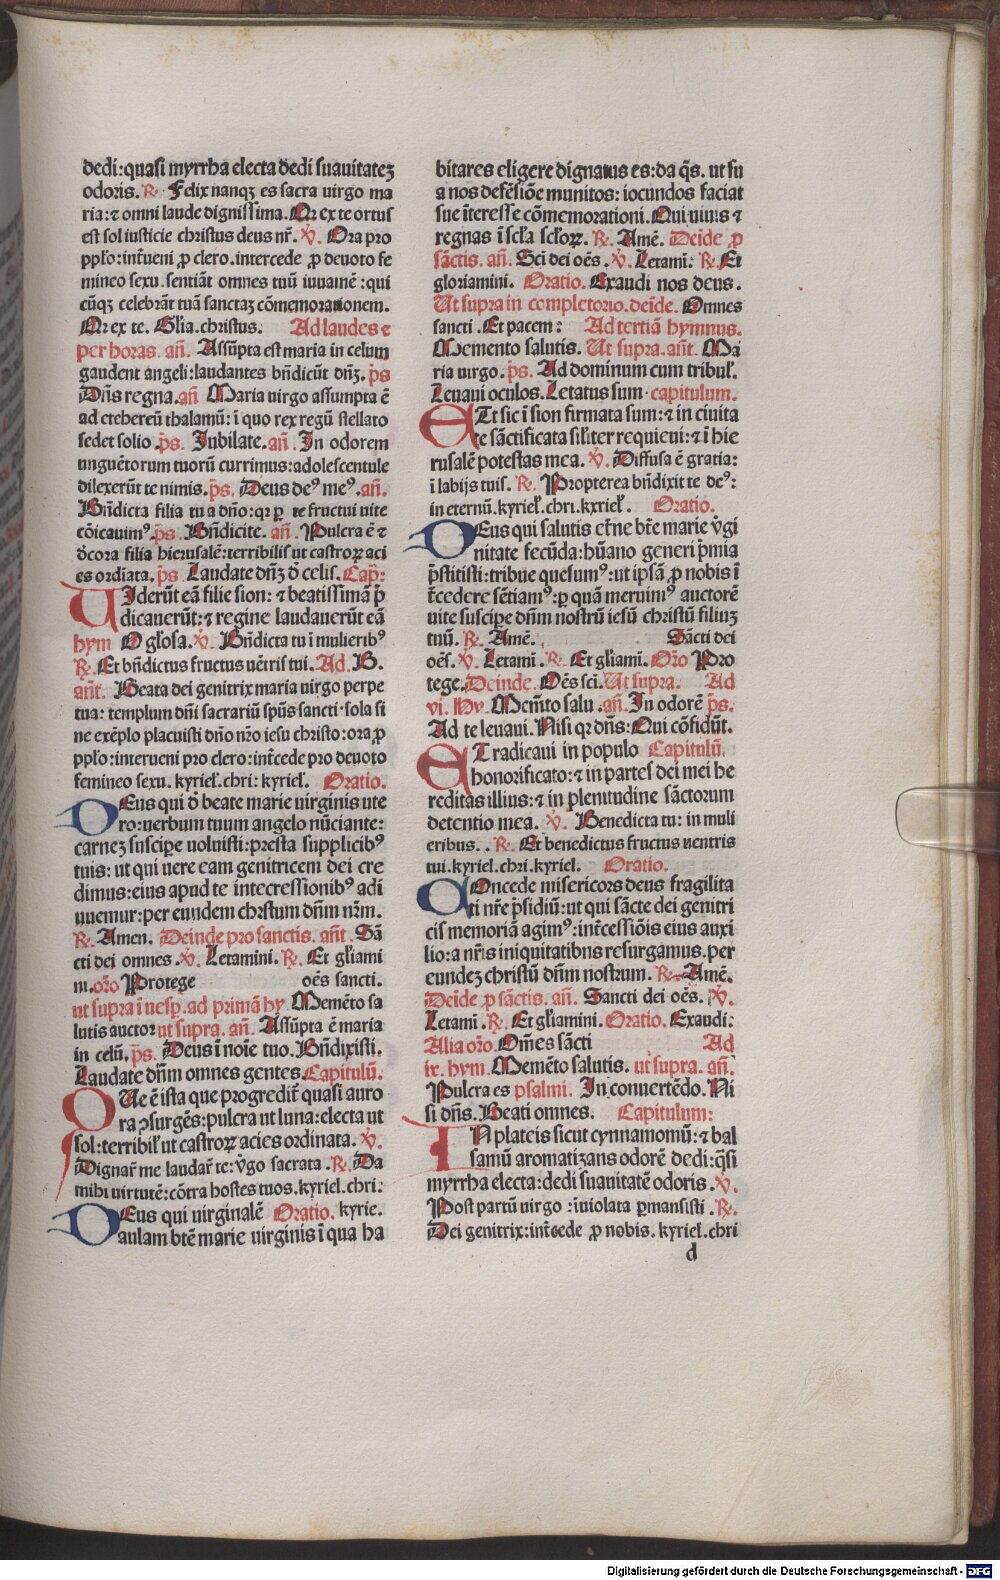 dedi:quasi myrrha electa dedi suauitatez
odoris. ℟. Felix nanqz es sacra virgo ma
ria:⁊ omni laude dignissima. Qr ex te ortus
est sol iusticie christus deus nr̄. ℣. Ora pro
pplo:int̄ueni ꝓ clero.intercede ꝓ deuoto fe
mineo sexu.sentiāt omnes tuū iuuamē:qui
cūqꝫ celebrāt tuā sanctaz cōmemorationem.
Qr ex te. Glīa.christus. Ad laudes ⁊
per horas. añ. Assūpta est maria in celum
gaudent angeli:laudantes bn̄dicūt dn̄ꝫ. ps
Dn̄s regna. añ Maria virgo assumpta ē
ad ethereū thalamū: ī quo rex regū stellato
sedet solio .ps. Iubilate. añ. In odorem
unguētorum tuorū currimus:adolescentule
dilexerūt te nimis. ps. Deus de⁹ me⁹. añ.
Bn̄dicta filia tu a dn̄o: qr ꝑ te fructū vite
cōicauim⁹. ps. Bn̄dicite. añ. Pulcra ē ⁊
dcora filia hierusalē:terribilis ut castroꝝ aci
es ordiata. ps Laudate dn̄ꝫ ō celis. Cap̄:
UIderūt eā filie sion: ⁊ beatissimā p̄
dicauerūt:⁊ regine laudauerūt eā
hym O glōsa. ℣. Bn̄dicta tu ī mulierib⁹
℟. Et bn̄dictus fructus vētris tui. Ad. B.
añt. Beata dei genitrix maria virgo perpe
tua: templum dn̄i sacrariū spūs sancti·sola si
ne exēplo placuisti dn̄o nr̄o iesu christo:ora ꝓ
pplo:interueni pro clero:int̄cede pro deuoto
femineo sexu. kyriel̄. chri: kyriel̄. Oratio.
DEus qui ō beate marie virginis vte
ro:verbum tuum angelo nūciante:
carnez suscipe voluisti:presta supplicib⁹
tuis: ut qui vere eam genitricem dei cre
dimus:eius apud te intecessionib⁹ adi
uuemur:per eundem chr̄stum dn̄m nr̄m.
℟. Amen. Deinde pro sanctis. añt. Sā
cti dei omnes. ℣. Letamini. ℟. Et gliami
ni. or̄o Protege oēs sancti.
ut supra ī vesp̄. ad primā hy Memēto sa
lutis auctor ut supra. añ. Assūpta ē maria
in celū. ps. Deus ī noīe tuo. Bn̄dixisti.
Laudate dn̄m omnes gentes. Capitulū.
QUe ē ista que progredit̄ quasi auro
ra ꝯsurgēs:pulcra ut luna:electa ut
sol:terribil̄ ut castroꝝ acies ordinata. ℣.
Dignar̄ me laudar̄ te: v̄go sacrata. ℟. Da
mihi virtutē:cōtra hostes tuos.kyriel.chri:
DEus qui virginalē Oratio. kyrie.
aulam btē marie virginis ī qua ha
bitares eligere dignatus es:da q̄s. ut su
a nos defēsiōe munitos: iocundos faciat
sue īteresse cōmemorationi. Qui viuis ⁊
regnas ī scl̄a scl̄oꝝ. ℟. Amē. Deīde ꝓ
sāctis. añ. Sci dei oēs. ℣. Letami: ℟. Et
gloriamini. Oratio. Exaudi nos deus.
Ut supra in completorio. deīde. Omnes
sancti. Et pacem: Ad tertiā hymnus.
Memento salutis. Ut supra. añt. Ma
ria virgo. ps. Ad dominum cum tribul̄.
Leuaui oculos. Letatus sum· capitulum.
ET sic ī sion firmata sum:⁊ in ciuita
te sāctificata sil̄iter requieui:⁊ ī hie
rusalē potestas mea. ℣. Diffusa ē gratia:
ī labijs tuis. ℟. Propterea bn̄dixit te de⁹:
in eternū.kyriel̄. chri. kyriel̄. Oratio.
DEus qui salutis et̄ne bt̄e marie v̄gi
nitate fecūda:hūano generi p̄mia
p̄stitisti:tribue quesum⁹:ut ipsā ꝓ nobis ī
t̄cedere sētiam⁹:ꝑ quā meruim⁹ auctorē
vite suscipe dn̄m nostrū iesū christū filiuꝫ
tuū. ℟. Amē. Sācti dei
oēs. ℣. Letami. ℟. Et gl̄iami. Or̄o Pro
tege. Deinde. Oēs sci. Ut supra. Ad
vi. Hy. Mem̄to salu. añ. In odorē ps.
Ad te leuaui. Nisi qr dn̄s: Qui cōfidūt.
ET radicaui in populo Capitulū.
honorificato:⁊ in partes dei mei he
reditas illius:⁊ in plenitudine sāctorum
detentio mea. ℣. Benedicta tu: in muli
eribus. . ℟. Et benedictus fructus ventris
tui.kyriel.chri.kyriel. Oratio.
COncede misericors deus fragilita
ti nr̄e p̄sidiū:ut qui sācte dei genitri
cis memoriā agim⁹:int̄cessiōis eius auxi
lio:a nr̄is iniquitatibus resurgamus.per
eundeꝫ christū dn̄m nostrum. ℟. Amē.
Deīde ꝓ sāctis. añ. Sancti dei oēs. ℣.
Letami. ℟. Et gl̄iamini. Oratio. Exaudi:
Alia or̄o. Om̄es sācti Ad
ix. hym. Memēto salutis. ut supra. añ.
Pulcra es psalmi. In conuertēdo. Ni
si dn̄s. Beati omnes. Capitulum:
IN plateis sicut cynnamomū:⁊ bal
samū aromatizans odorē dedi:q̄si
myrrha electa:dedi suauitatē odoris. ℣.
Post partū virgo :īuiolata ꝑmansisti. ℟.
Dei genitrix:int̄cede ꝓ nobis. kyriel.chri
d
Digitalisierung gefördert durch die Deutsche Forschungsgemeinschaft - DFG